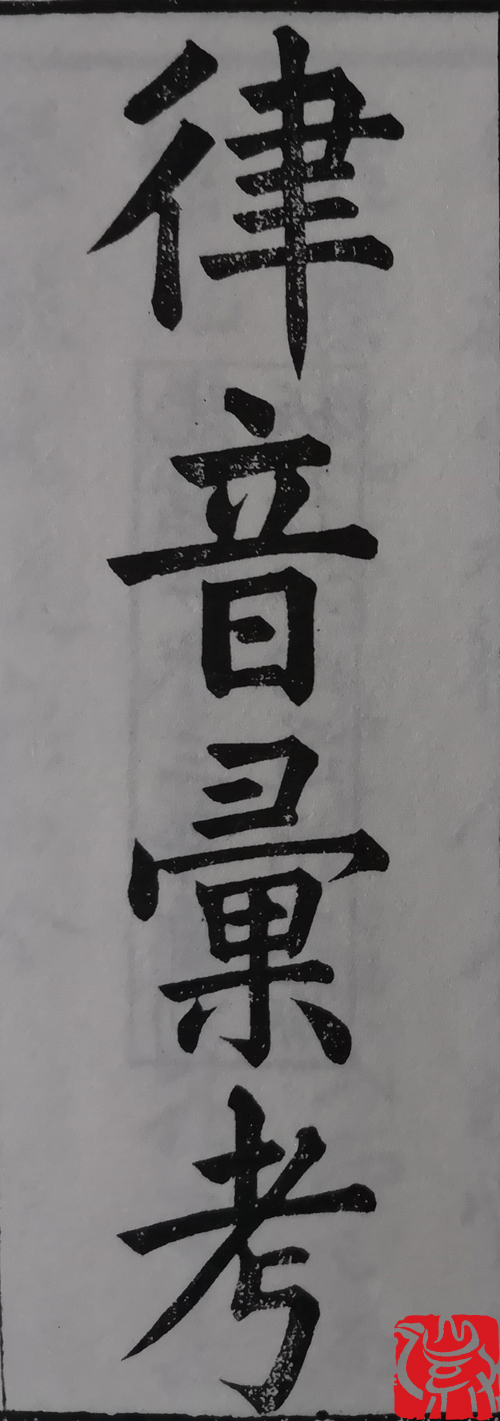 律音彙考